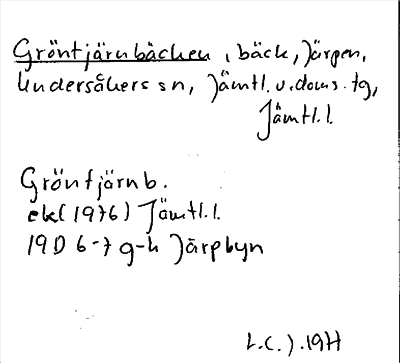 Gröntjärnbäcken, bäck, Järpen,
Undersåkers sn, Jämtl. v. doms. tg,
Jämtl. l.
Gröntjärnb.
ek (1976) Jämtl. l.
19D 6-7 g-h Järpbyn